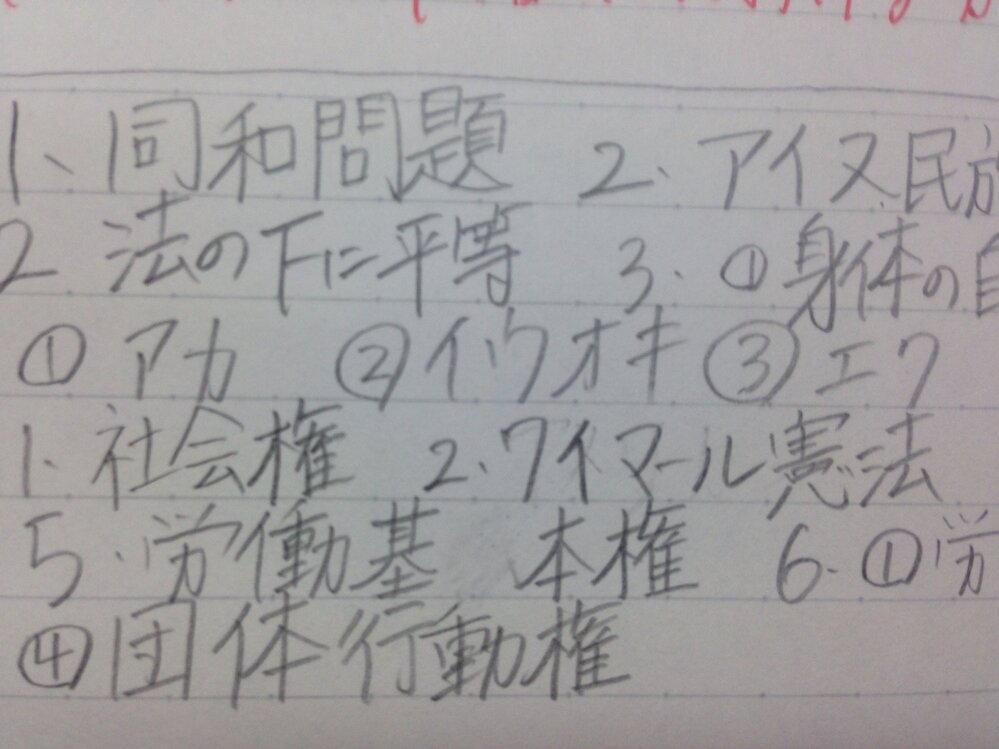 1、同和問題 2. アイヌ民族
2 法の下に平等 3. ①身体の自
①アカ ②イウオキ ③エク
1. 社会権 2. ワイマール憲法
5. 労働基 本権 6. ①労
④団体行動権